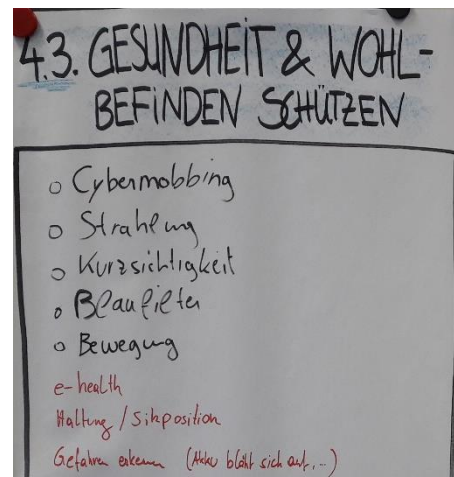 4.3. GESUNDHEIT & WOHL-
BEFINDEN SCHÜTZEN
o Cybermobbing
o Strahlung
o Kurzsichtigkeit
o Blaufilter
o Bewegung
e-health
Haltung / Sitzposition
Gefahren erkennen (Akku bläht sich auf, ..)